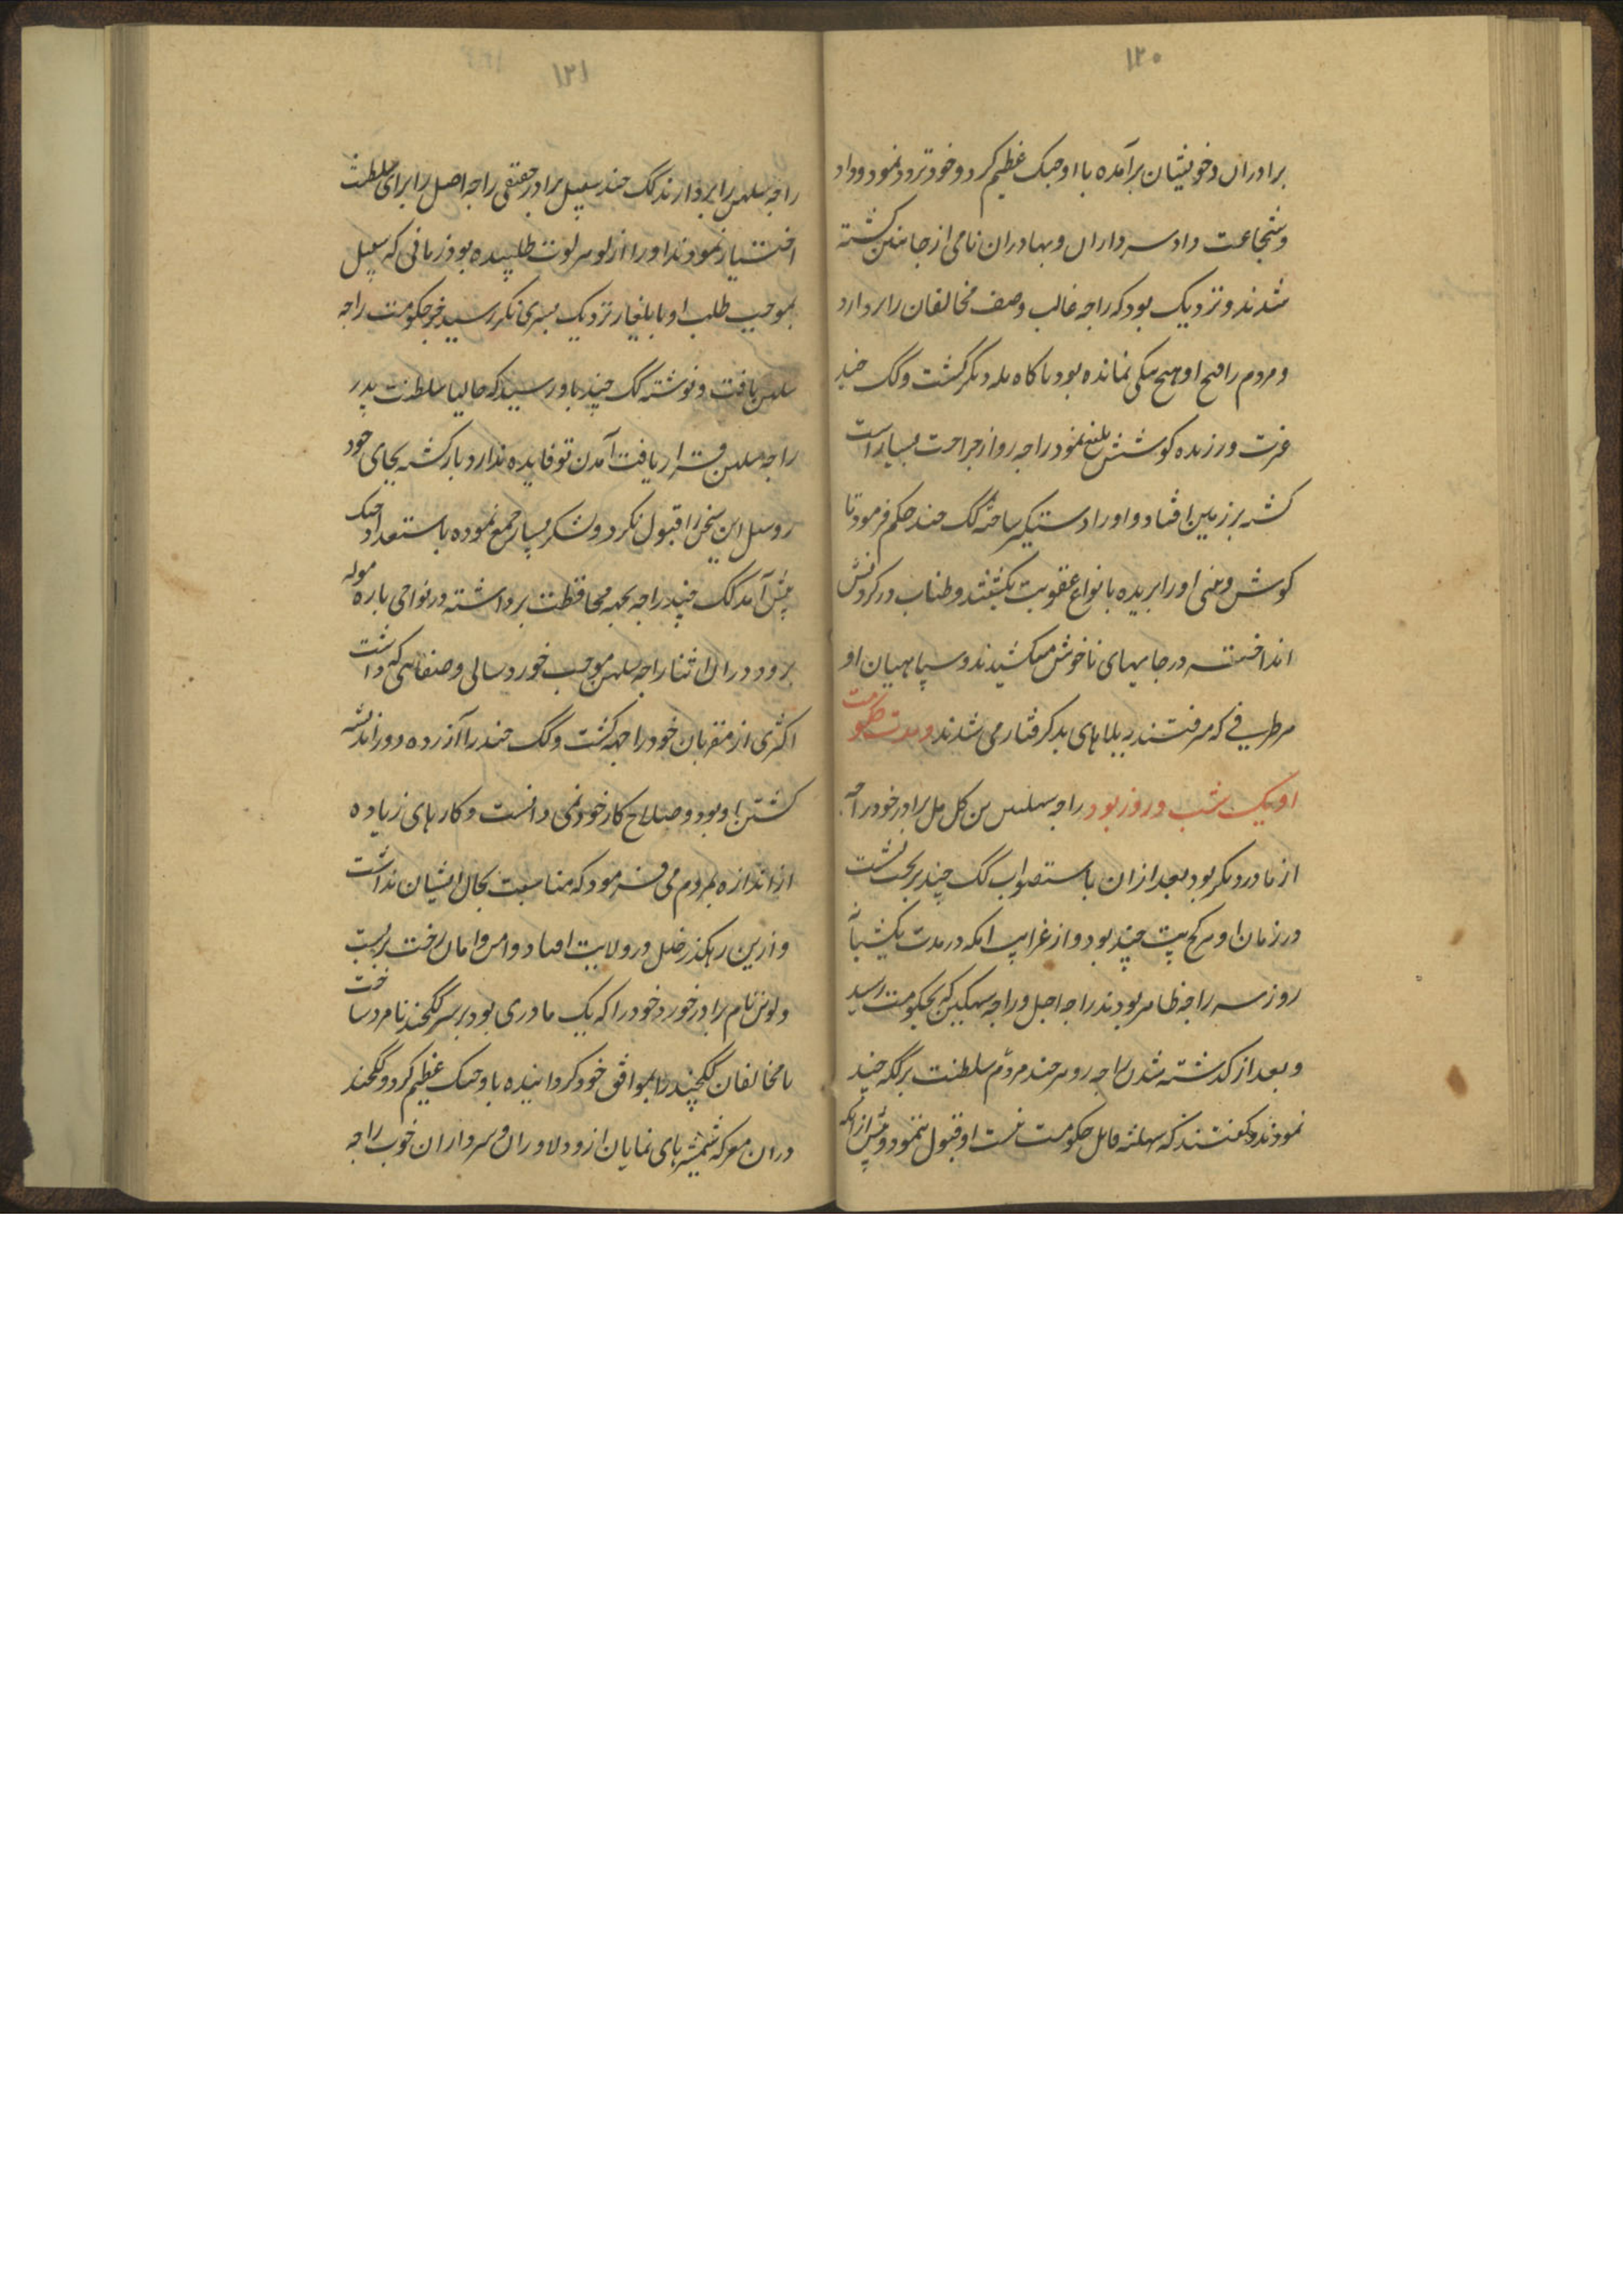 ۱۲۰
برادران و خویشان برآمده با او جنک عظیم کرد و خود تردد نمود و داد
و شجاعت داد سرداران و بهادران نامی از جانبین کشته
شدند و نزدیک بود که راجه غالب و صف مخالفان را بردارد
و مردم را فتح او هیچ شکی نمانده بود ناکاه دیکر کشت و کک چند
غرت ورزیده کوشش بلیغ نمود راجه رو از جراحت بسیار است
کشه بر زمین افتاد و او را دستکیر ساخته کک چند حکم فرمود تا
کوش و بینی او را بریده بانواع عقوبت بکشتند و طناب در کردنش
انداخته در جایهای ناخوش میکشیدند و سپاهیان او
هر طرفی که مرفتند به بلاهای بد کرفتار می شدند و مدت حکومت
او یک شب و روز بود راجه سهلس بن کل مل برادر خود راجه
از مادر دیکر بود بعد ازان باستصواب کک چند بتخت نشست
در زمان او هرکج پت چند بود و از غرایب انکه در مدت یکشبا
روز سه راجه ظاهر بودند راجه اجل و راجه سهکین که بحکومت رسید
و بعد از کذشته شدن راجه رو هر چند مردم سلطنت بر کک چند
نمودند و کفتند که سهلته قابل حکومت نیست او قبول ننمود و پیش ازانکه
۱۲۱
راجه سلهن را بردارند کک چند سپل برادر حقیقی راجه اصل را برای سلطنت
اختیار نمودند او را از لوهر لوت طلبیده بود زمانی که سپل
بموجب طلب او با یلغار نزدیک بسری نکر رسید خبر حکومت راجه
سلهن یافت و نوشته کک چند باو رسید که حالیا سلطنت بر
راجه سلهن قرار یافت آمدن تو فایده ندارد بازکشته بجای خود
رو سپل این سخن را قبول نکرد و لشکر بسیار جمع نموده باستعداد جنک
پیش آمد کک چند راجه بجهه محافظت برداشته در نواحی باره موله
برود دران اثنا راجه سلهن بموجب خورد سالی و ضعفهای که داشت
اکثری از مقربان خود را جهه کشت و کک چند را آزرده در اندیشه
کشتن او بود و صلاح کار خود نمی دانست و کارهای زیاده
از اندازه بمردم می فرمود که مناسبت بحال ایشان نداشت
و ازین رهکذر خلل در ولایت افتاد و امن و امان رخت بربست
و لوش نام برادر خورد خود را که یک مادری بود بر سر ککچند نامرد ساخت
تا مخالفان ککچند را موافق خود کردانیده باو جنک عظیم کرد و ککچند
دران معرکه شمشیرهای نمایان ازو دلاوران و سرداران خوب راجه